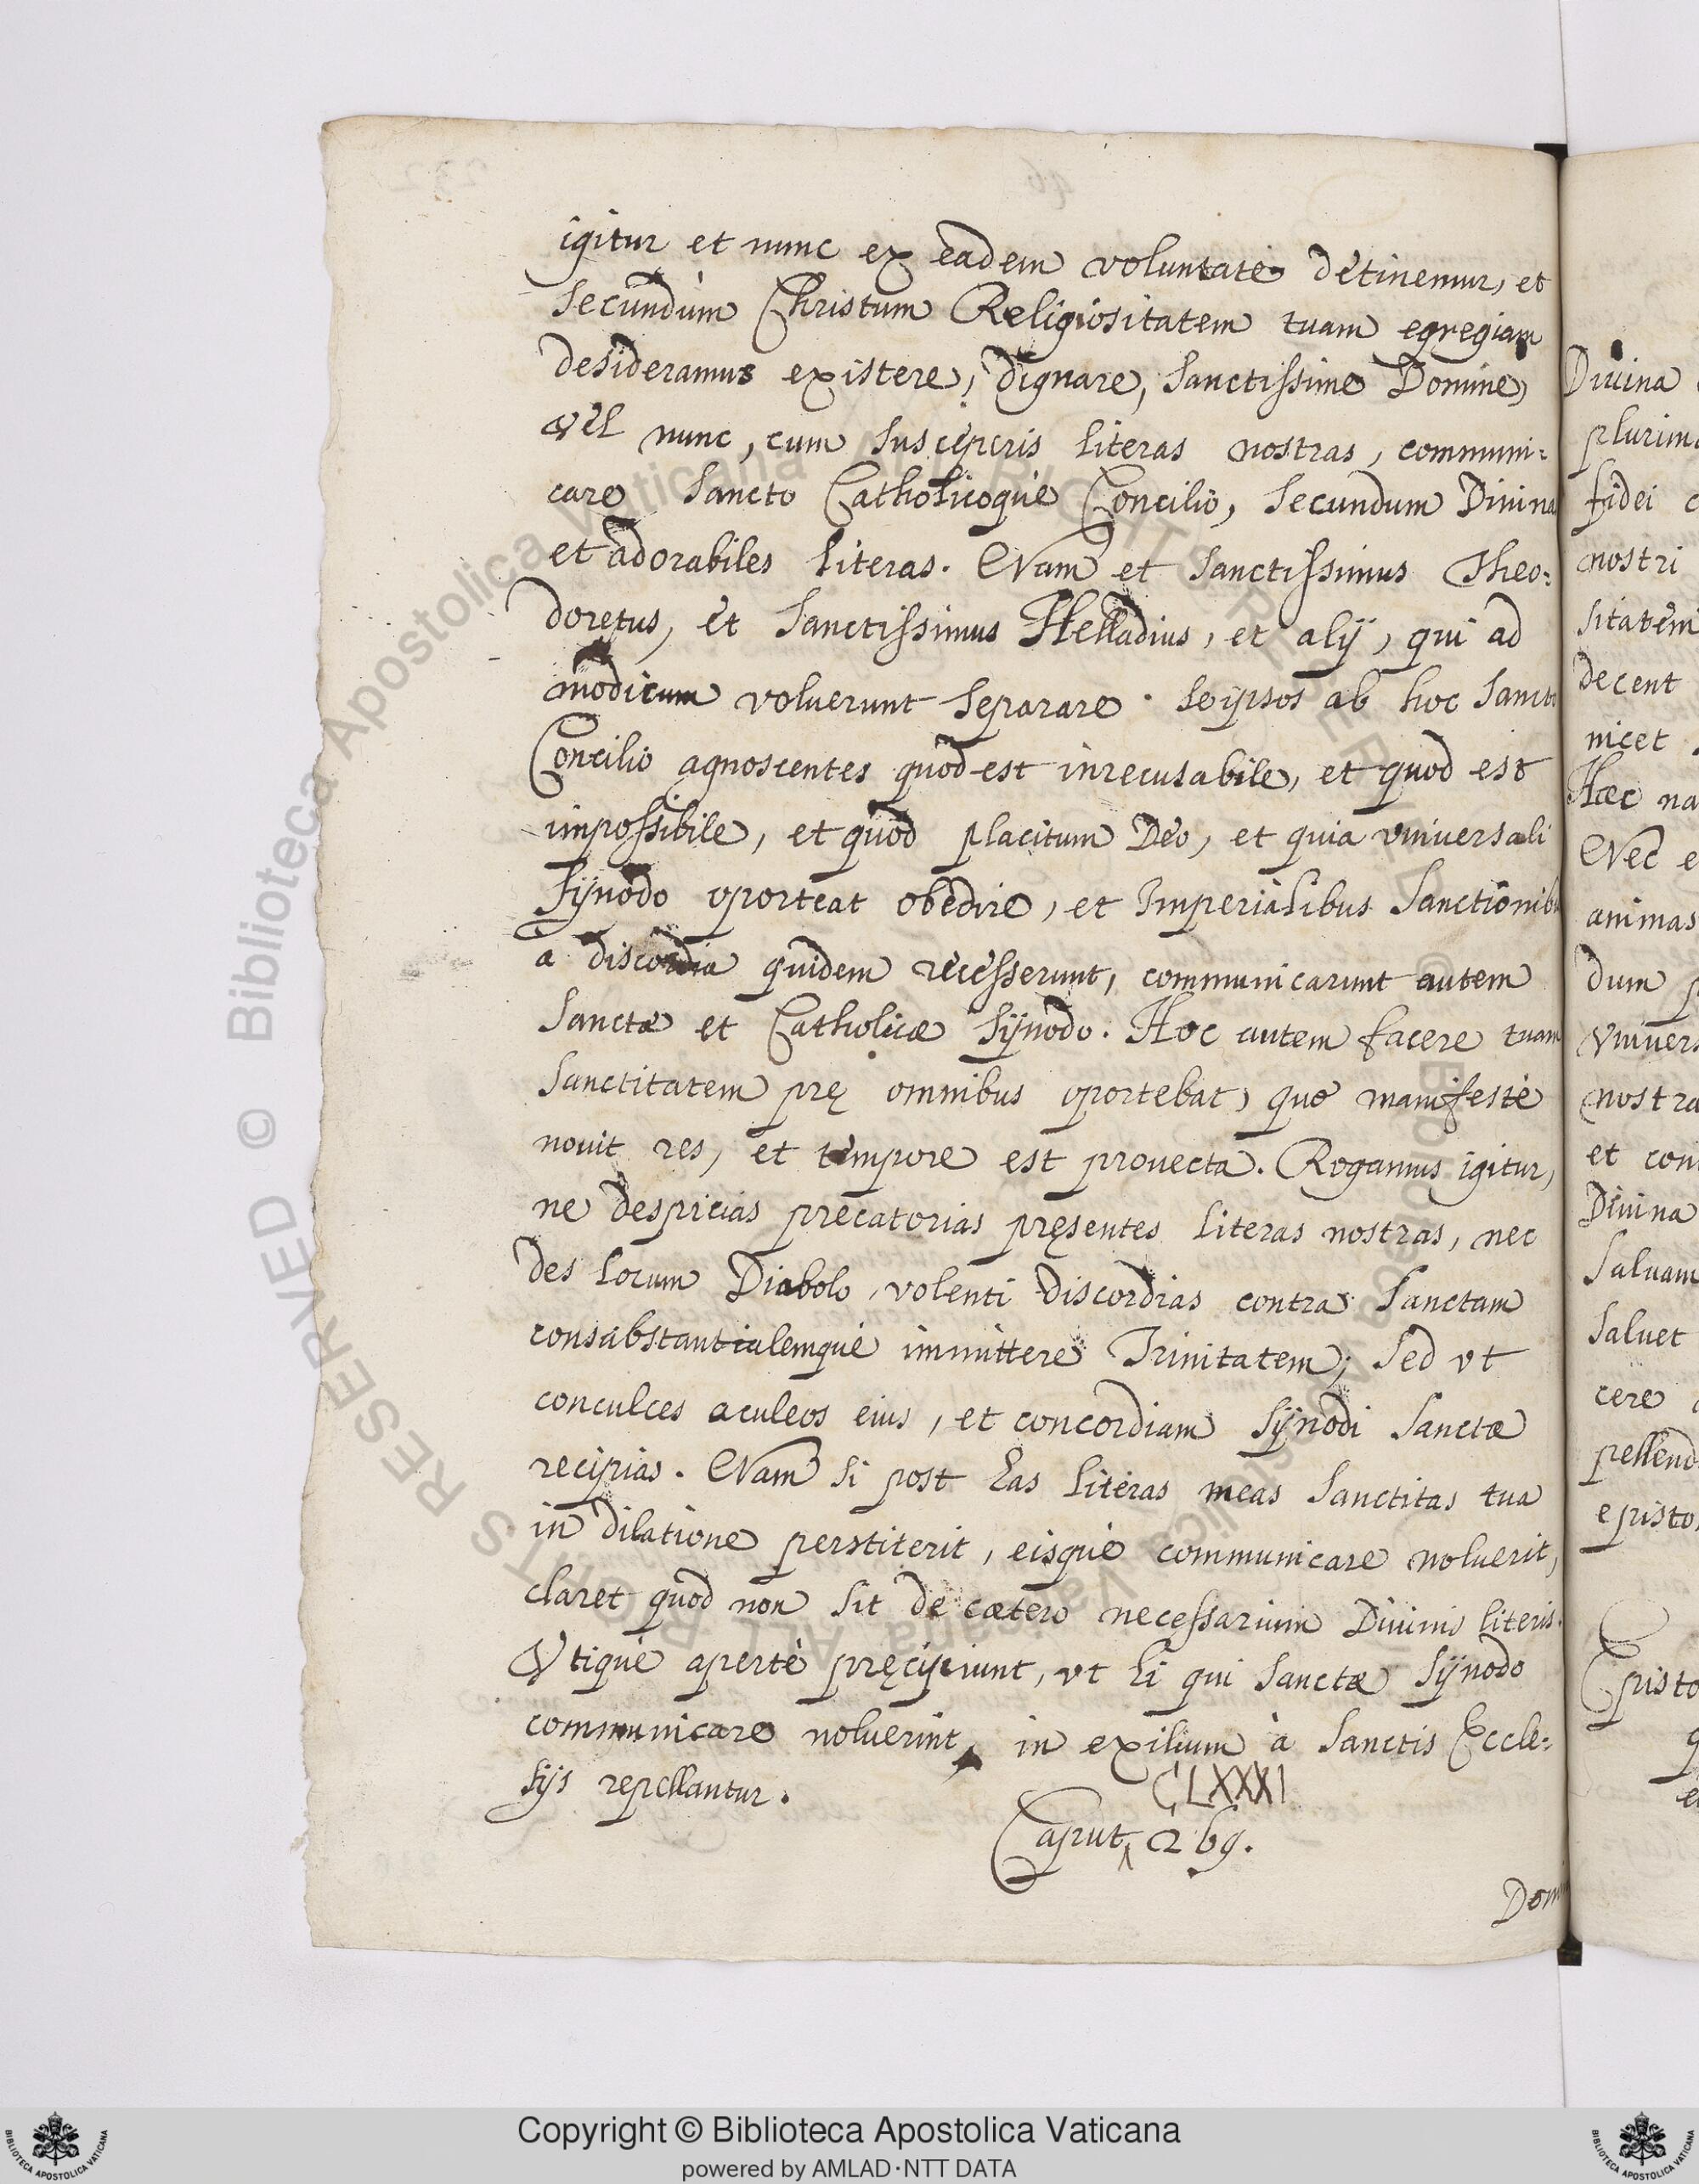 igitur et nunc ex eadem voluntate detinemur, et
secundum Christum Religiositatem tuam egregiam
desideramus existere, dignare, sanctissime Domine,
vel nunc, cum susceperis literas nostras, communi-
care sancto Catholicoque Concilio, secundum Divina
et adorabiles literas. Nam et sanctissimus Theo-
doretus, et sanctissimus Helladius, et alij, qui ad
modicum voluerunt separare seipsos ab hoc sancto
Concilio agnoscentes quod est inrecusabile, et quod est
impossibile, et quod placitum Deo, et quia vniversali
synodo oporteat obedire, et Imperialibus sanctionibus
a discordia quidem recesserunt, communicarunt autem
sanctæ et Catholicæ synodo. Hoc autem facere tuam
sanctitatem prę omnibus oportebat, quæ manifestè
nouit res, et tempore est prouecta. Rogamus igitur,
ne despicias precatorias pręsentes literas nostras, nec
des locum Diabolo, volenti discordias contra sanctam
consubstantialemque immittere Trinitatem; sed vt
conculces aculeos eius, et concordiam synodi sanctæ
recipias. Nam si post has literas meas sanctitas tua
in dilatione perstiterit, eisque communicare noluerit,
claret quod non sit de cætero necessarium Diuinis literis.
Vtique apertè pręcipiunt, vt hi qui sanctæ synodo
communicare noluerint, in exilium à sanctis Eccle-
sijs repellantur.
CLXXXI
Caput 269.
Dom
Diuina
plurim
fidei c
nostri
sitatem
decent
nicet
Hæc na
Nec e
animas
dum p
Vniuers
nostra
et con
Diuina
saluam
saluet
cere
pellend
episto
Episto
q
© Biblioteca Apostolica Vaticana ALL RIGHTS RESERVED
Copyright © Biblioteca Apostolica Vaticana
powered by AMLAD·NTT DATA
BIBLIOTECA APOSTOLICA VATICANA
BIBLIOTECA APOSTOLICA VATICANA